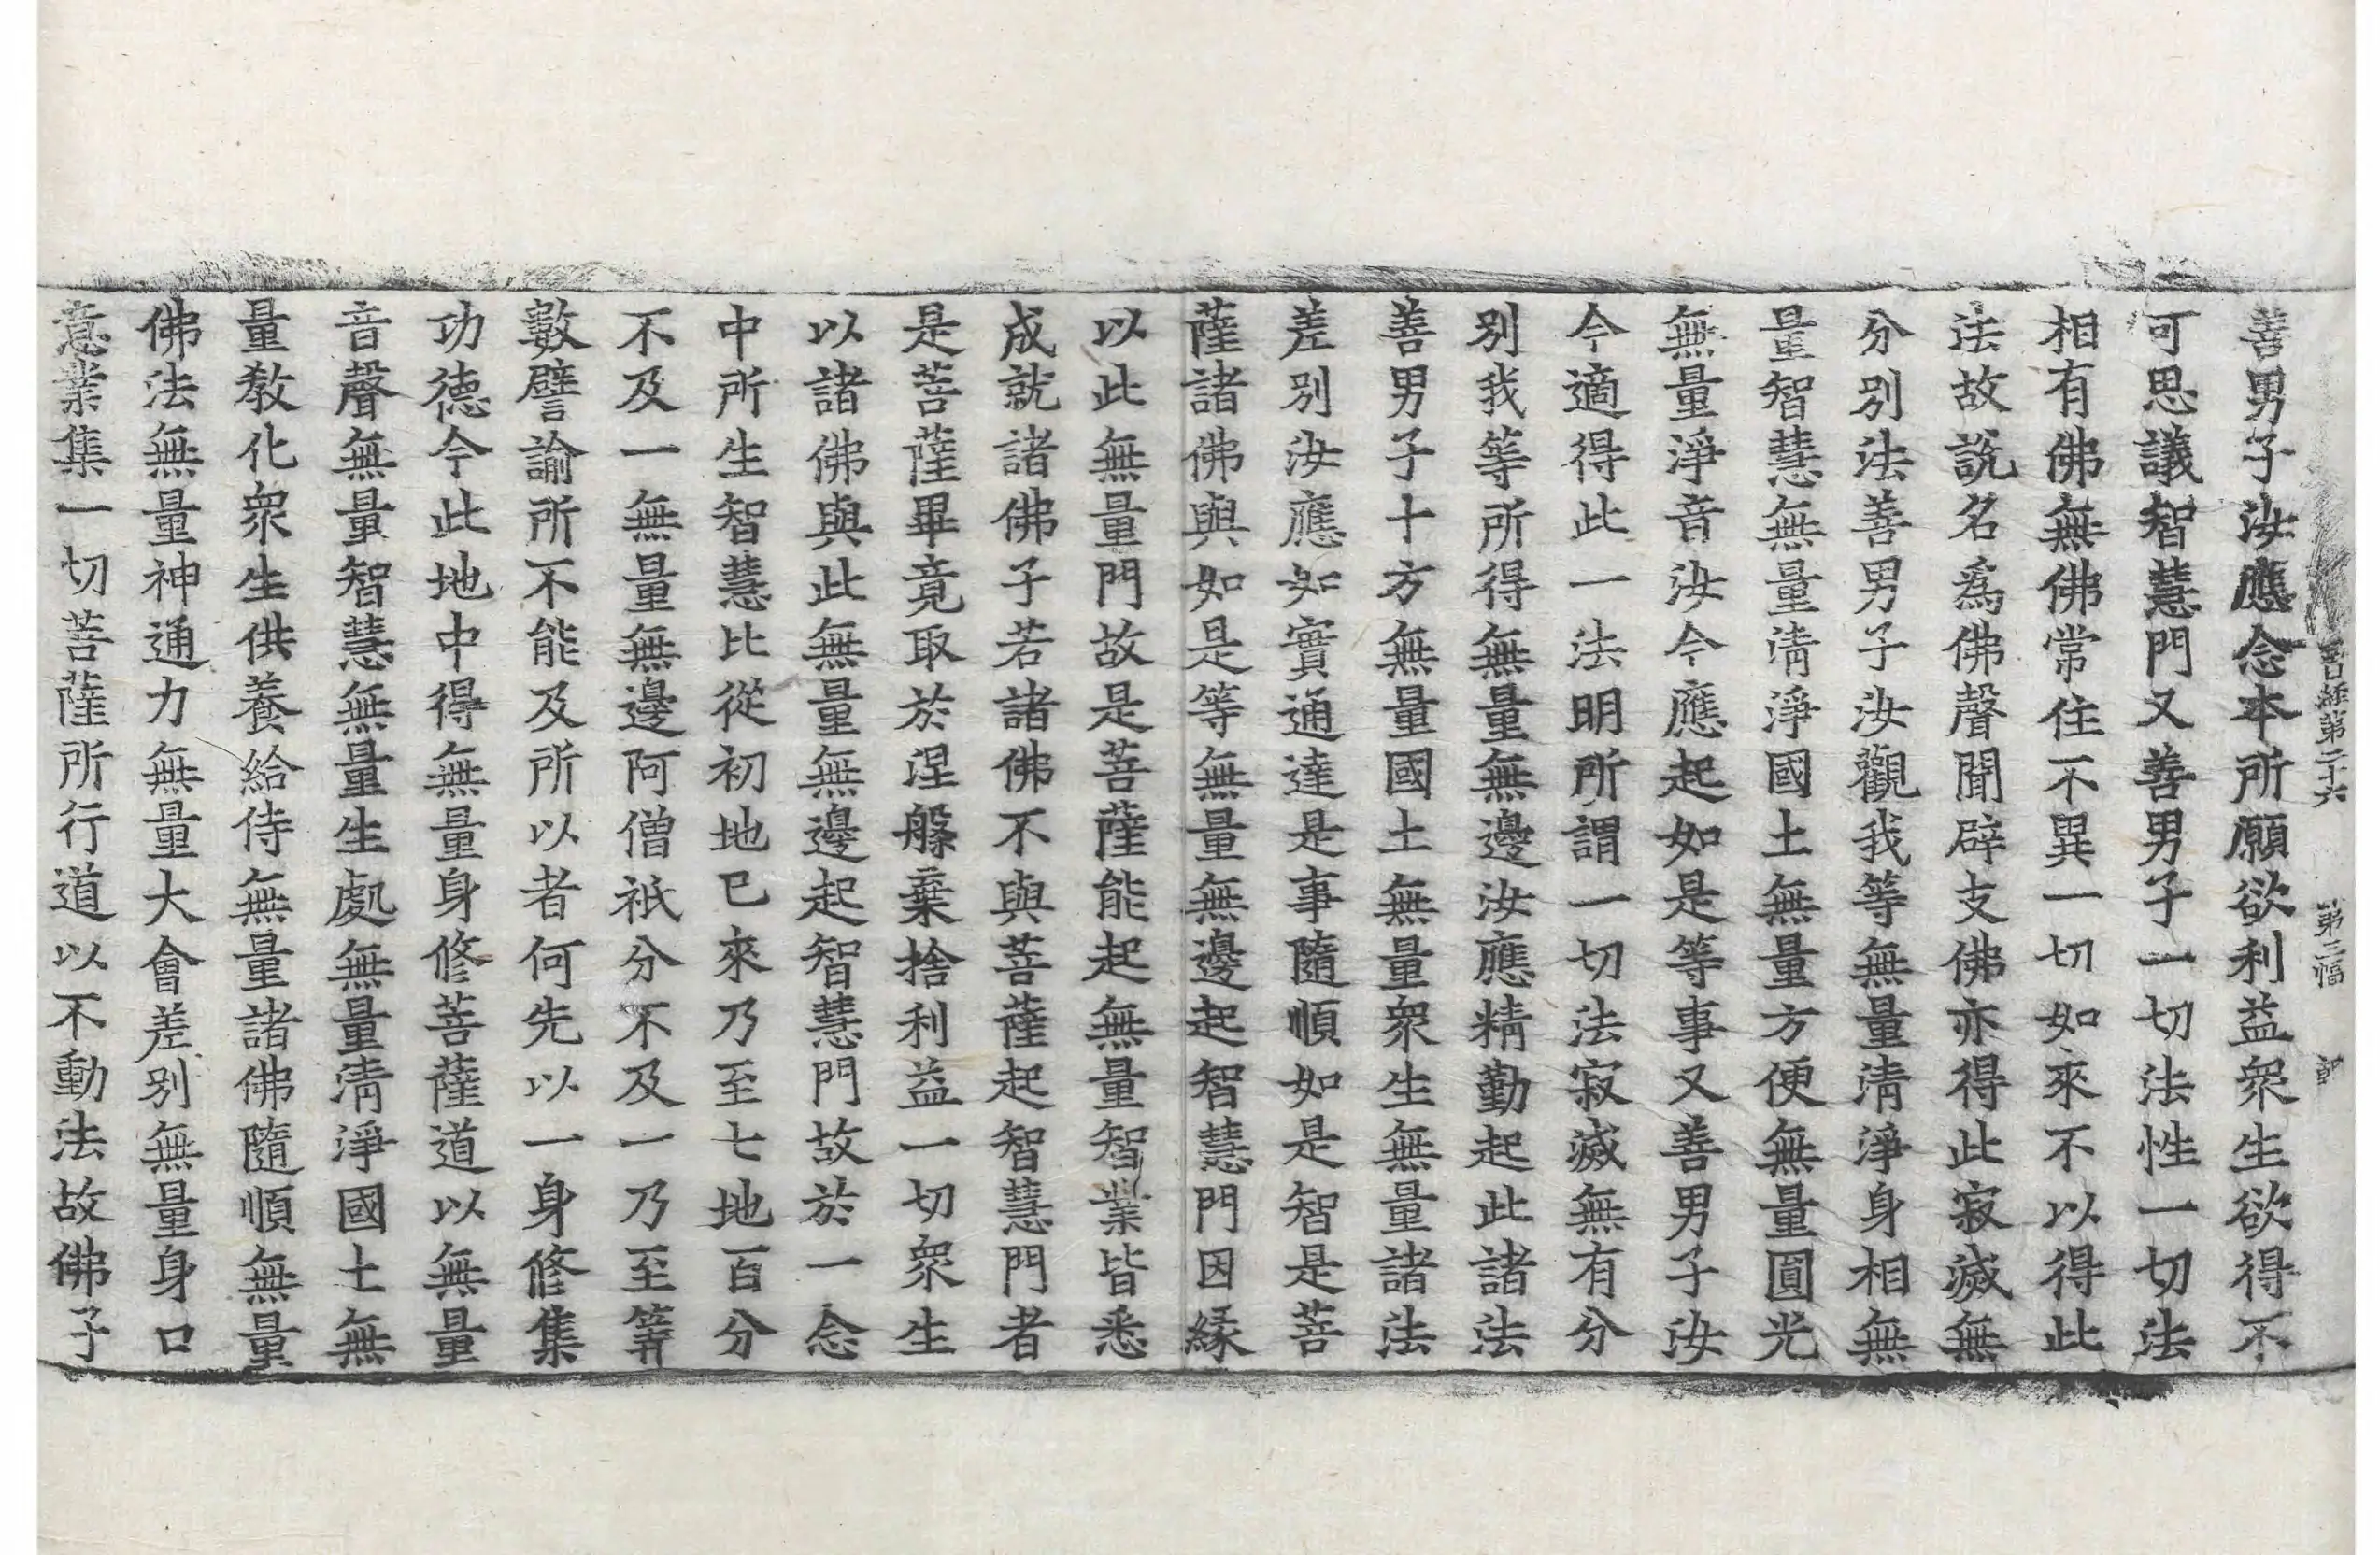 晉經第二十六　第三幅
善男子汝應念本所願欲利益衆生欲得不
可思議智慧門又善男子一切法性一切法
相有佛無佛常住不異一切如來不以得此
法故說名爲佛聲聞辟支佛亦得此寂滅無
分別法善男子汝觀我等無量清淨身相無
量智慧無量清淨國土無量方便無量圓光
無量淨音汝今應起如是等事又善男子汝
今適得此一法明所謂一切法寂滅無有分
別我等所得無量無邊汝應精勤起此諸法
善男子十方無量國土無量衆生無量諸法
差別汝應如實通達是事隨順如是智是菩
薩諸佛與如是等無量無邊起智慧門因緣
以此無量門故是菩薩能起無量智業皆悉
成就諸佛子若諸佛不與菩薩起智慧門者
是菩薩畢竟取於涅槃棄捨利益一切衆生
以諸佛與此無量無邊起智慧門故於一念
中所生智慧比從初地已來乃至七地百分
不及一無量無邊阿僧祇分不及一乃至筭
數譬喻所不能及所以者何先以一身修集
功德今此地中得無量身修菩薩道以無量
音聲無量智慧無量生處無量清淨國土無
量教化衆生供養給侍無量諸佛隨順無量
佛法無量神通力無量大會差別無量身口
意業集一切菩薩所行道以不動法故佛子